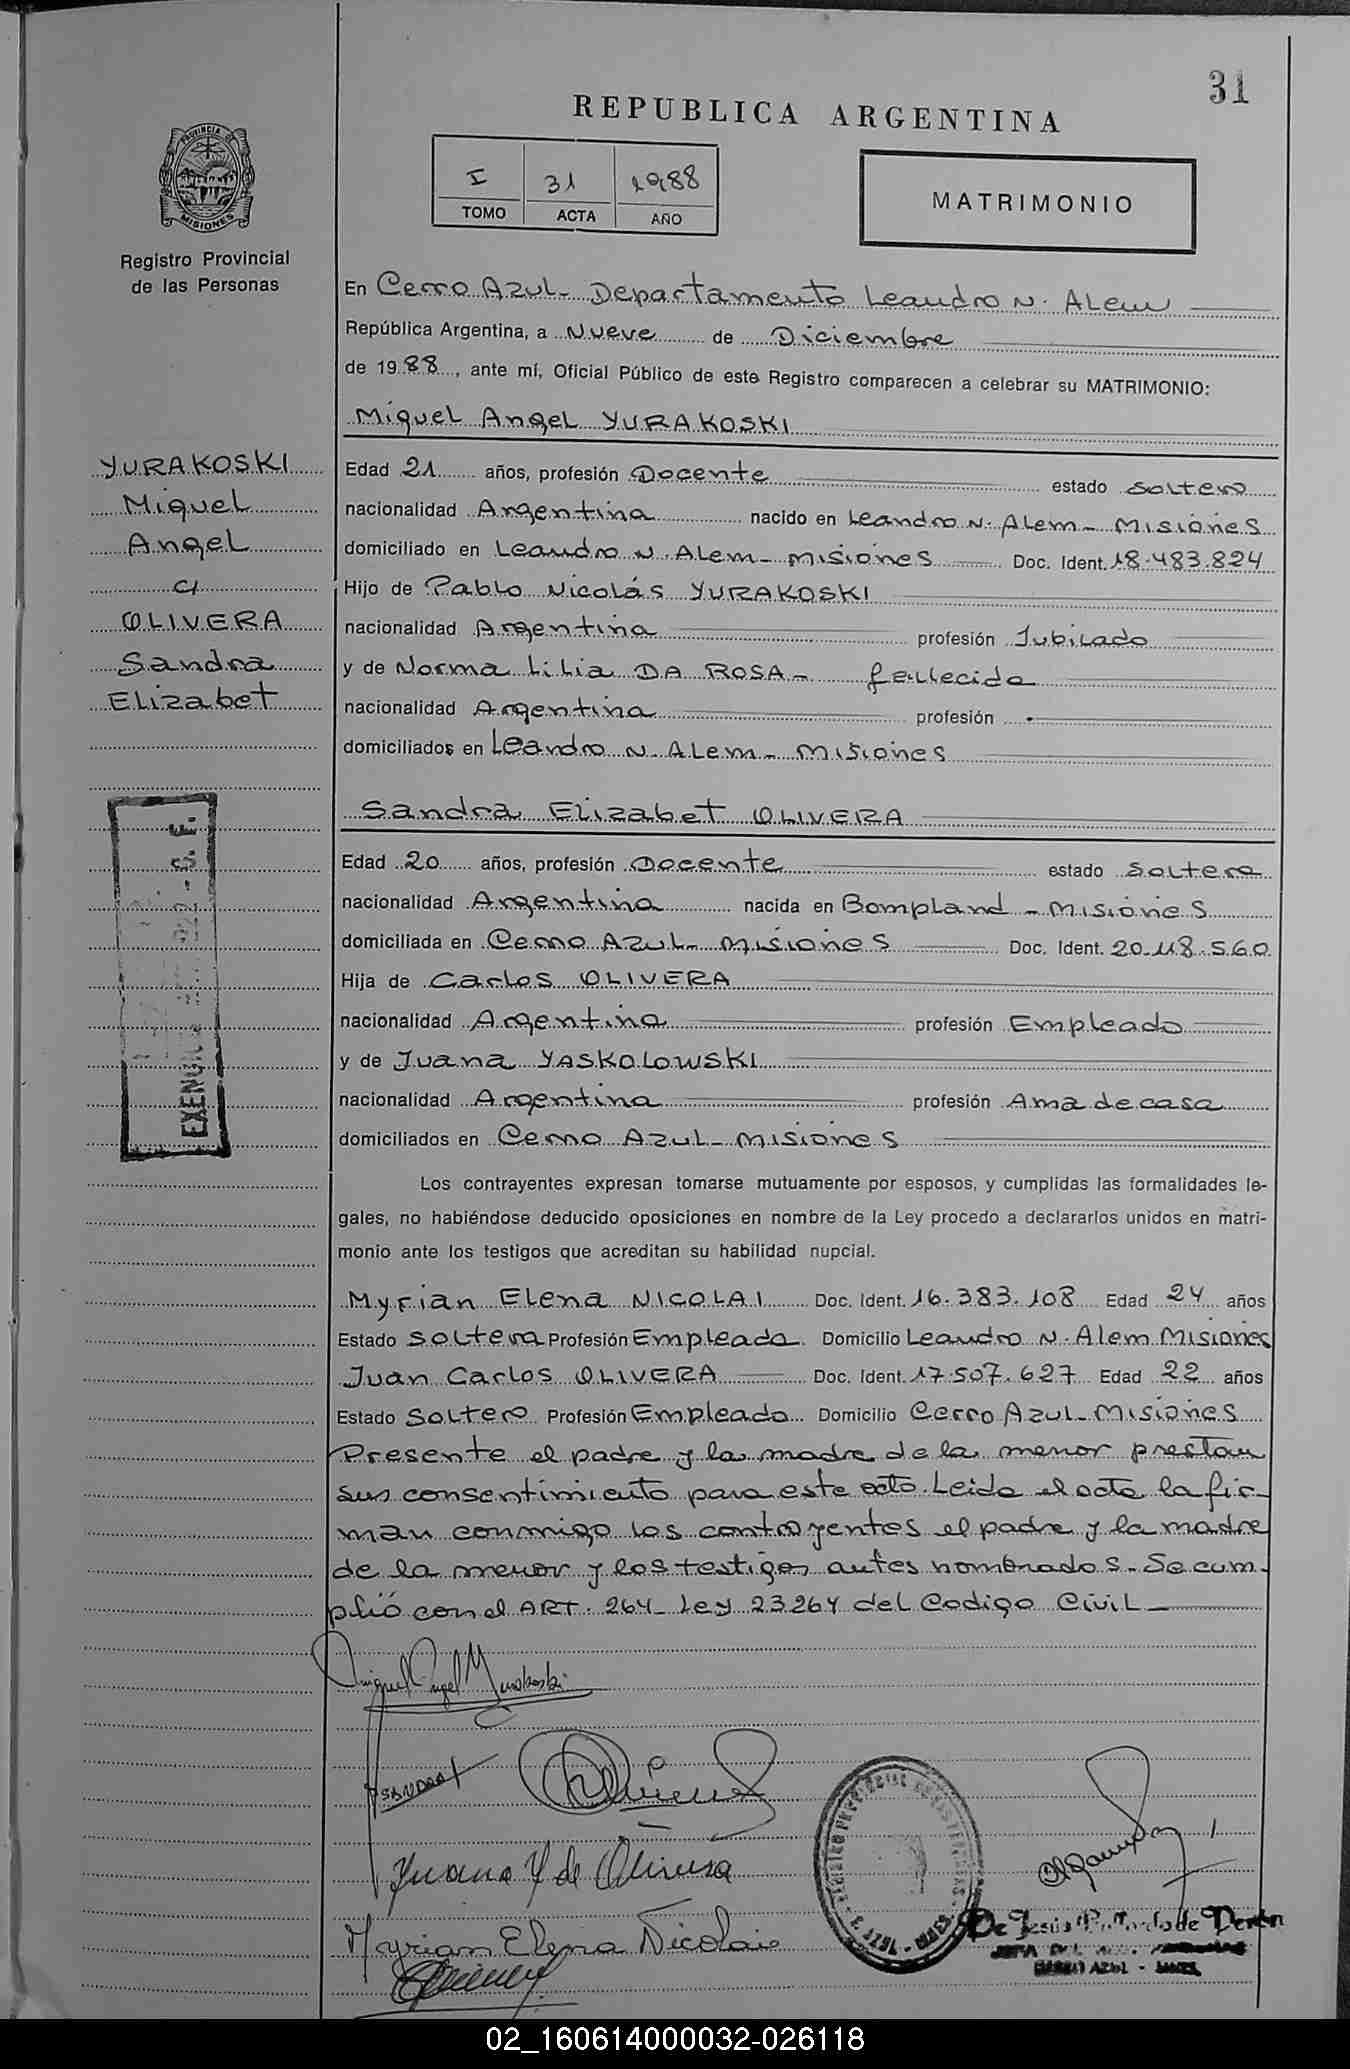 31
REPUBLICA ARGENTINA
PROVINCIA DE
MISIONES
Registro Provincial
de las Personas
I 31 1988
TOMO ACTA AÑO
MATRIMONIO
En Cerro Azul- Departamento Leandro N. Alem
República Argentina, a Nueve de Diciembre
de 1988, ante mí, Oficial Público de este Registro comparecen a celebrar su MATRIMONIO:
Miguel Angel YURAKOSKI
YURAKOSKI
Miguel
Angel
c/
OLIVERA
Sandra
Elizabet
Edad 21 años, profesión Docente estado soltero
nacionalidad Argentina nacido en Leandro N. Alem- Misiones
domiciliado en Leandro N. Alem- Misiones Doc. Ident. 18.483.824
Hijo de Pablo Nicolás YURAKOSKI
nacionalidad Argentina profesión Jubilado
y de Norma Lilia DA ROSA- fallecida
nacionalidad Argentina profesión
domiciliados en Leandro N. Alem- Misiones
Sandra Elizabet OLIVERA
Edad 20 años, profesión Docente estado soltera
nacionalidad Argentina nacida en Bompland - Misiones
domiciliada en Cerro Azul- Misiones Doc. Ident. 20.118.560
Hija de Carlos OLIVERA
nacionalidad Argentina profesión Empleado
y de Juana YASKOLOWSKI
nacionalidad Argentina profesión Ama de casa
domiciliados en Cerro Azul- Misiones
Los contrayentes expresan tomarse mutuamente por esposos, y cumplidas las formalidades le-
gales, no habiéndose deducido oposiciones en nombre de la Ley procedo a declararlos unidos en matri-
monio ante los testigos que acreditan su habilidad nupcial.
Myrian Elena NICOLAI Doc. Ident. 16.383.108 Edad 24 años
Estado soltera Profesión Empleada Domicilio Leandro N. Alem Misiones
Juan Carlos OLIVERA Doc. Ident. 17.507.627 Edad 22 años
Estado Soltero Profesión Empleado Domicilio Cerro Azul- Misiones
Presente el padre y la madre de la menor prestan
sus consentimiento para este acto. Leida el acta la fir-
man conmigo los contrayentes el padre y la madre
de la menor y los testigos antes nombrados. Se cum-
plió con el ART. 264- Ley 23264 del Codigo Civil-
Miguel Angel Yurakoski
SANDRA
Olivera
Juana Y de Olivera
Myrian Elena Nicolai
De Jesús
CERRO AZUL - MNES.
02_160614000032-026118